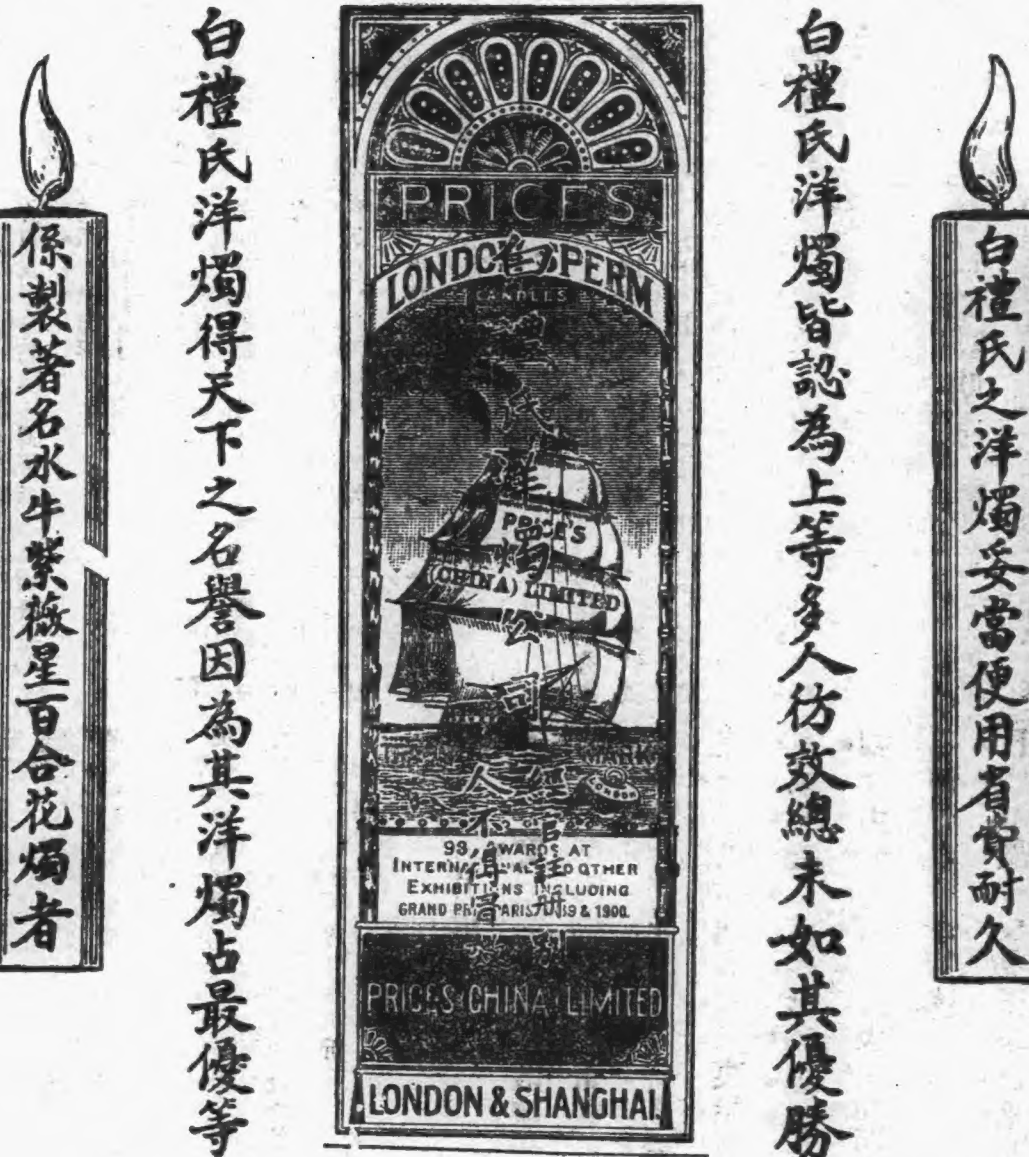 白禮氏之洋燭妥當便用省費耐久
白禮氏洋燭皆認為上等多人彷效總未如其優勝
PRICE'S
LONDON SPERM
CANDLES
白禮氏洋燭公司
PRICE'S
(CHINA) LIMITED
MARK
LONDON
經官註冊別
人不得冒效
93 AWARDS AT
INTERNATIONAL AND OTHER
EXHIBITIONS INCLUDING
GRAND PRIX PARIS 1889 & 1900.
PRICES CHINA LIMITED
LONDON & SHANGHAI.
白禮氏洋燭得天下之名譽因為其洋燭占最優等
係製著名水牛紫薇星百合花燭者